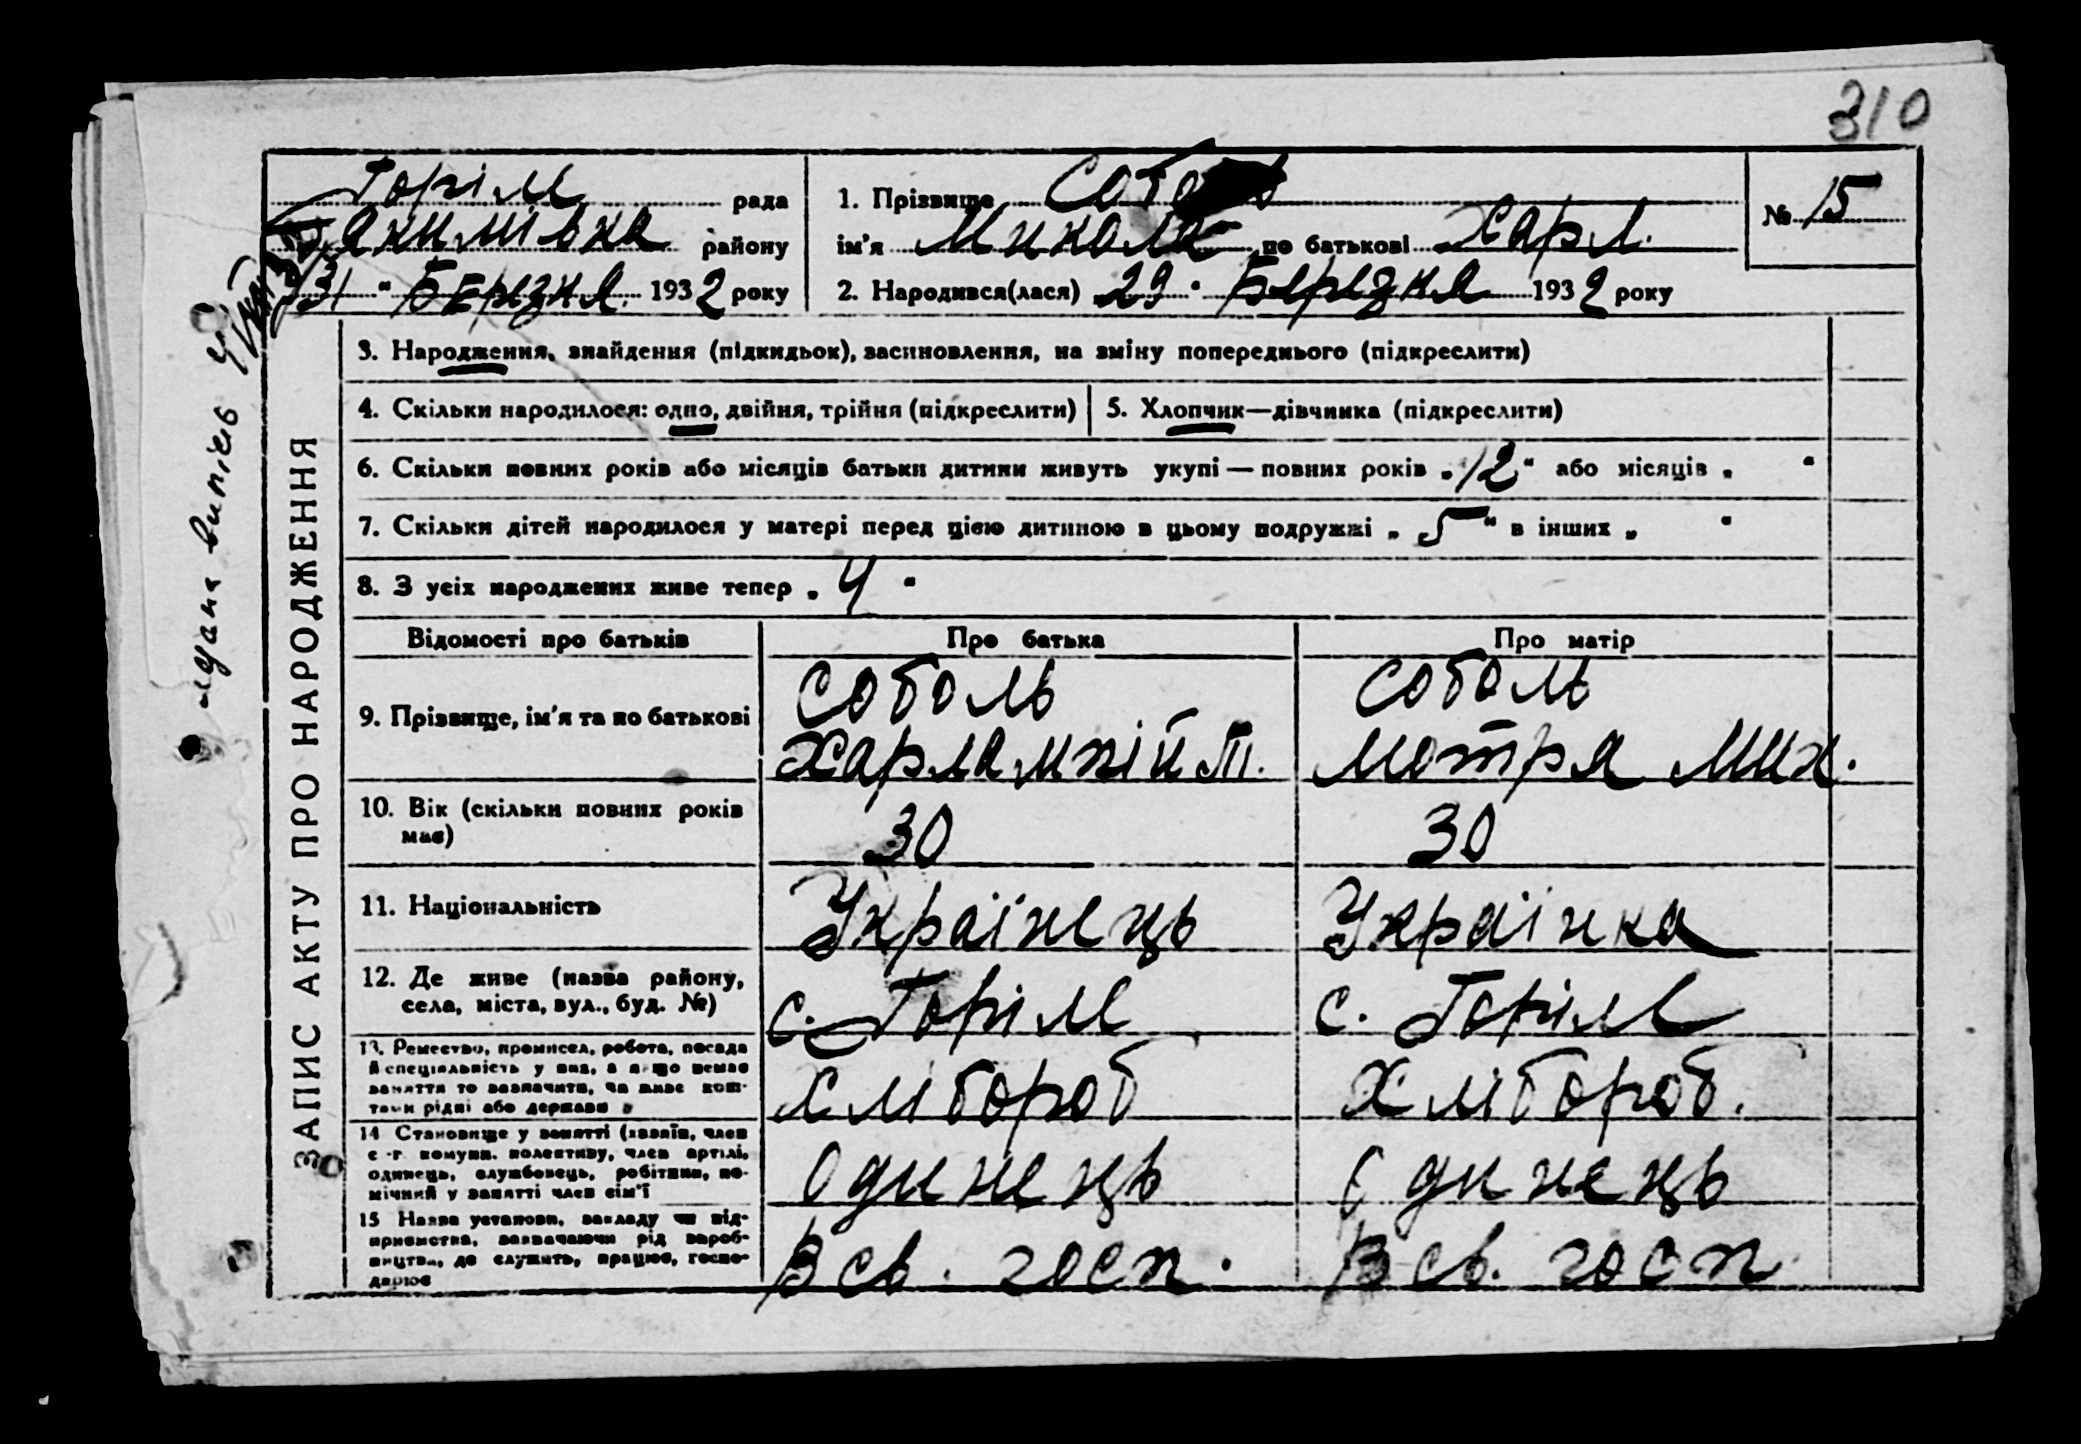 310
Горіле рада
Якимівка району
31 " Березня 1932 року
1. Прізвище Собо
ім'я Микола по батькові Харл.
2. Народився(лася) 29 " Березня 1932 року
№ 15
видана виписъ
ЗАПИС АКТУ ПРО НАРОДЖЕННЯ
3. Народження, знайдення (підкидьок), засиновлення, на зміну попереднього (підкреслити)
4. Скільки народилося: одно, двійня, трійня (підкреслити)
5. Хлопчик—дівчинка (підкреслити)
6. Скільки повних років або місяців батьки дитини живуть укупі — повних років „ 12 " або місяців „ "
7. Скільки дітей народилося у матері перед цією дитиною в цьому подружжі „ 5 " в інших „ "
8. З усіх народжених живе тепер „ 4 "
Відомості про батьків
Про батька
Про матір
9. Прізвище, ім'я та по батькові
Соболь
Харлампій П.
Соболь
Мотря Мих.
10. Вік (скільки повних років
має)
30
30
11. Національність
Українець
Українка
12. Де живе (назва району,
села, міста, вул., буд. №)
с. Горіле
с. Горіле
13. Ремество, промисел, робота, посада
й спеціяльність у них, а якщо немає
заняття то зазначити, на чиє кош-
тами рідні або держави
Хлібороб
Хлібороб.
14 Становище у занятті (хазяїн, член
с.-г. комуни, колективу, член артілі,
одинець, службовець, робітник, по-
мічний у занятті член сім'ї
Одинець
Одинець
15 Назва установи, закладу чи під-
приємства, зазначаючи рід вироб-
ництва, де служить, працює, госпо-
дарює
В св. госп.
В св. госп.